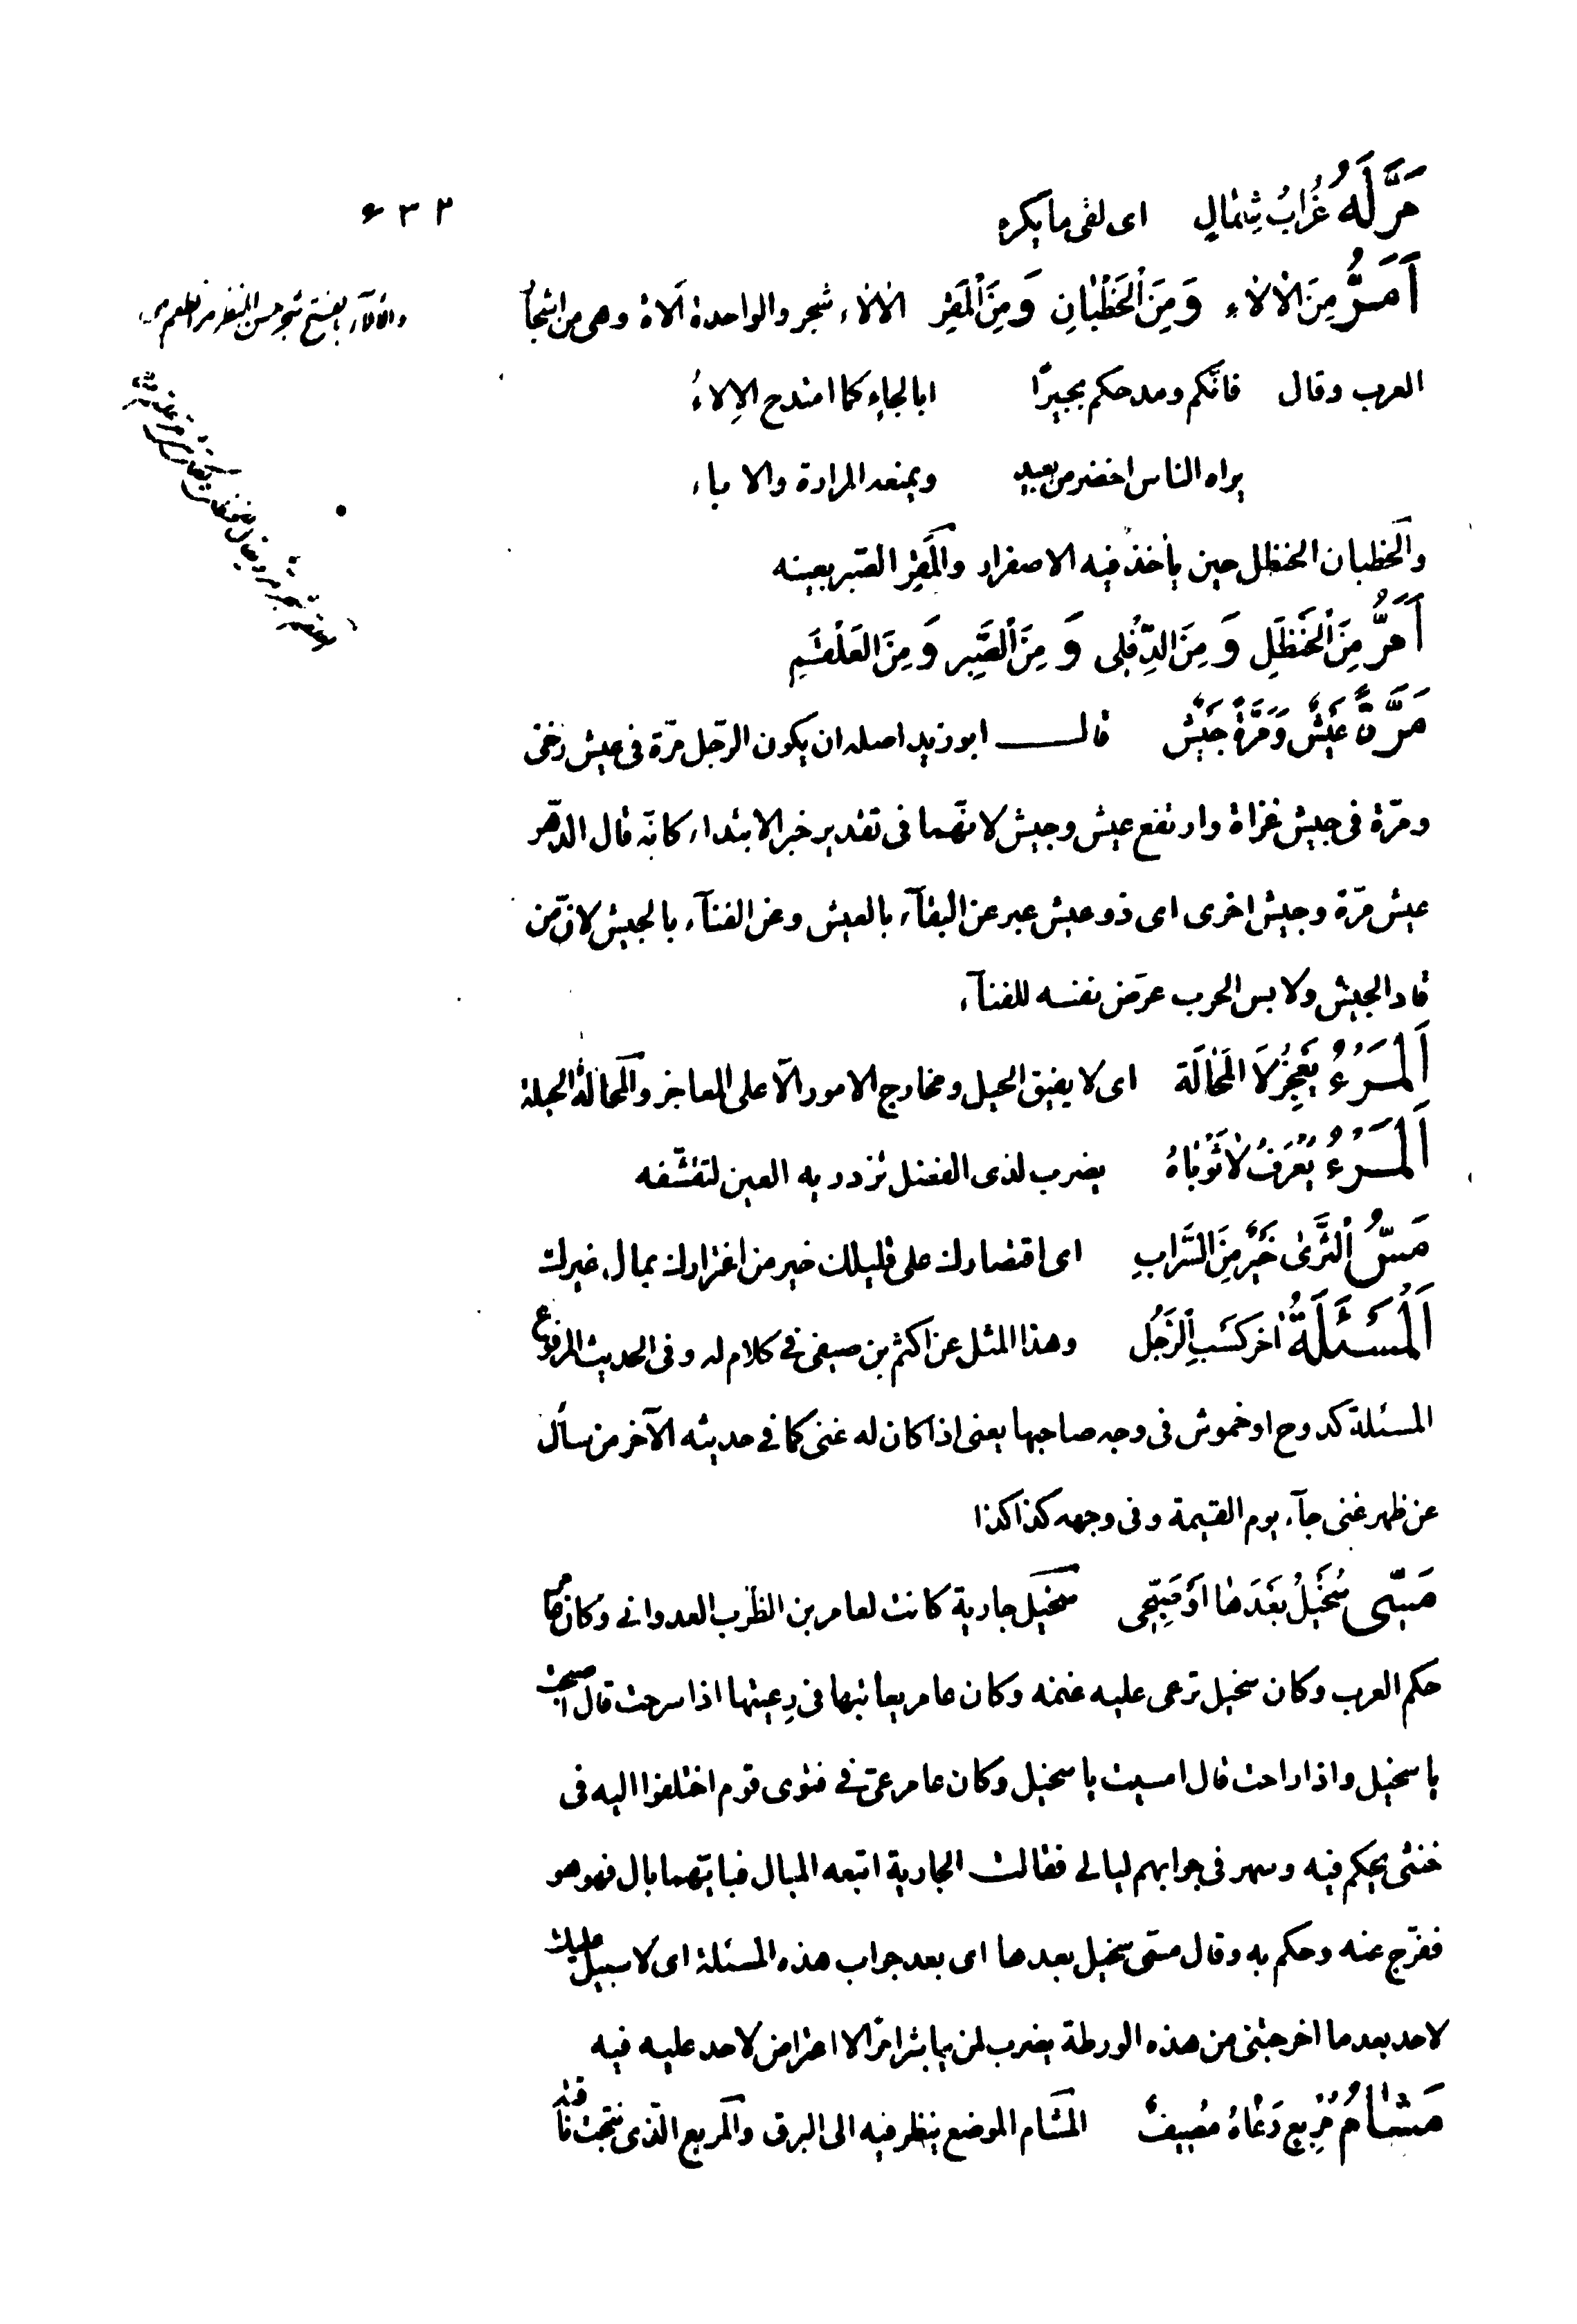 ۶۳۲
مَرَّ لَهُ غُرَابُ شِمَالٍ اى لقى ما يكره
اَمَرُّ مِنَ الْاَلاٰءِ وَ مِنَ الْخَطْبٰانِ وَ مِنَ الْمَقِرِ الالاء شجر والواحدة الاة وهى من اشجار
العرب وقال فانّكم ومدحكم بجيرًا ابا لجاءٍ كما امتدح الالاءُ
يراه الناس اخضر من بعيدٍ ويمنعه المرارة والاباء
والخطبان الحنظل حين يأخذ فيه الاصفرار والمَقِر الصّبر بعينه
اَمَرُّ مِنَ الْحَنْظَلِ وَ مِنَ الدِّفْلى وَ مِنَ الصَّبِرِ وَ مِنَ الْعَلْقَمِ
مَرَّةً عَيْشٌ وَ مَرَّةً جَيْشٌ قال ابو زيد اصله ان يكون الرّجل مرّة فى عيش رخىّ
ومرّة فى جيش غزاة وارتفع عيش وجيش لانّهما فى تقدير خبر الابتداء كانّه قال الدّهر
عيش مرّة وجيش اخرى اى ذو عيش عبر عن البقآء بالعيش وعن الفنآء بالجيش لانّ من
قاد الجيش ولابس الحرب عرّض نفسه للفنآء
اَلْمَرْءُ يَعْجِزُ لَا الْمَحٰالَة اى لا يضيق الحيل ومخارج الامور الّا على العاجز والمحالة الحيلة
اَلْمَرْءُ يُعْرَفُ لاٰ ثَوْبٰاهُ يضرب لذى الفضل تزدريه العين لتقشّفه
مَسُّ الثَّرىٰ خَيْرٌ مِنَ السَّرابِ اى اقتصارك على قليلك خير من اغترارك بمال غيرك
اَلْمَسْئَلَةُ اٰخِرُ كَسْبِ الرَّجُلِ وهذا المثل عن اكثم بن صيفى فى كلام له وفى الحديث المرفوع
المسئلة كدوح او خموش فى وجه صاحبها يعنى اذا كان له غنى كما فى حديثه الآخر من سأل
عن ظهر غنى جآء يوم القيمة وفى وجهه كذا كذا
مَسّى سُخَيْلُ بَعْدَهٰا اَوْ صَبِّحى سخيل جارية كانت لعامر بن الظّرب العدوانى وكان من
حكم العرب وكان سخيل ترعى عليه غنمه وكان عامر يعاتبها فى رِعيتها اذا سرحت قال اصبحت
يا سخيل واذا راحت قال امسيت يا سخيل وكان عامر عىّ فى فتوى قوم اختلفوا اليه فى
خنثى يحكم فيه وسهر فى جوابهم ليالى فقالت الجارية اتبعه المبال فبايّهما بال فهو هو
ففرّج عنه وحكم به وقال مسّى سخيل بعدها اى بعد جواب هذه المسئلة اى لا سبيل عليك
لاحد بعد ما اخرجتنى من هذه الورطة يضرب لمن يباشر امرًا لا اعتراض لاحد عليه فيه
مَشٰامُ مُرْبِعٍ رَعٰاهُ مُصِيفٌ المشام الموضع ينظر فيه الى البرق والمربع الّذى نتجت ناقته